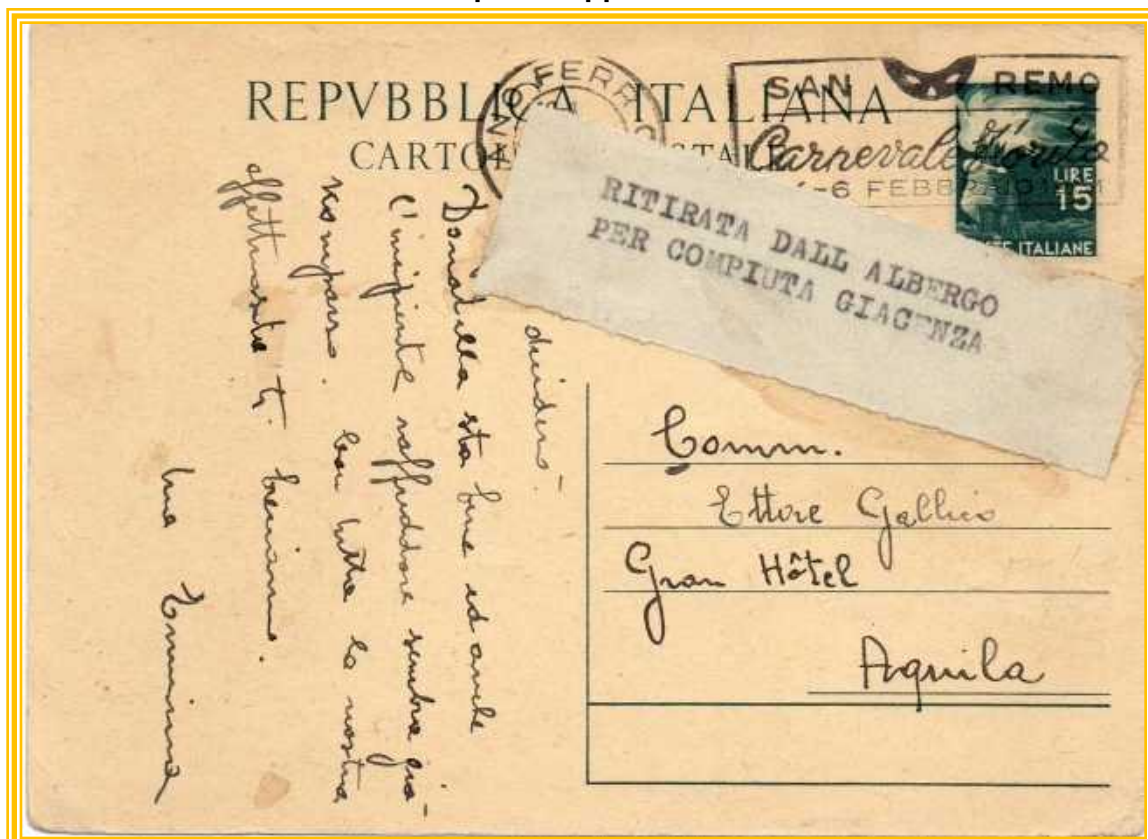 REPVBBLICA ITALIANA
CARTOL STALE
SAN REMO
Carnevale fiorito
-6 FEBBRAIO
LIRE
15
ITALIANE
RITIRATA DALL ALBERGO
PER COMPIUTA GIACENZA
Comm.
Ettore Gallico
Gran Hôtel
Aquila
desidero -
Donatella sta bene ed anche
l'insipiente raffreddore sembra già
scomparso. Con tutta la nostra
affettuosità ti baciamo.
tua